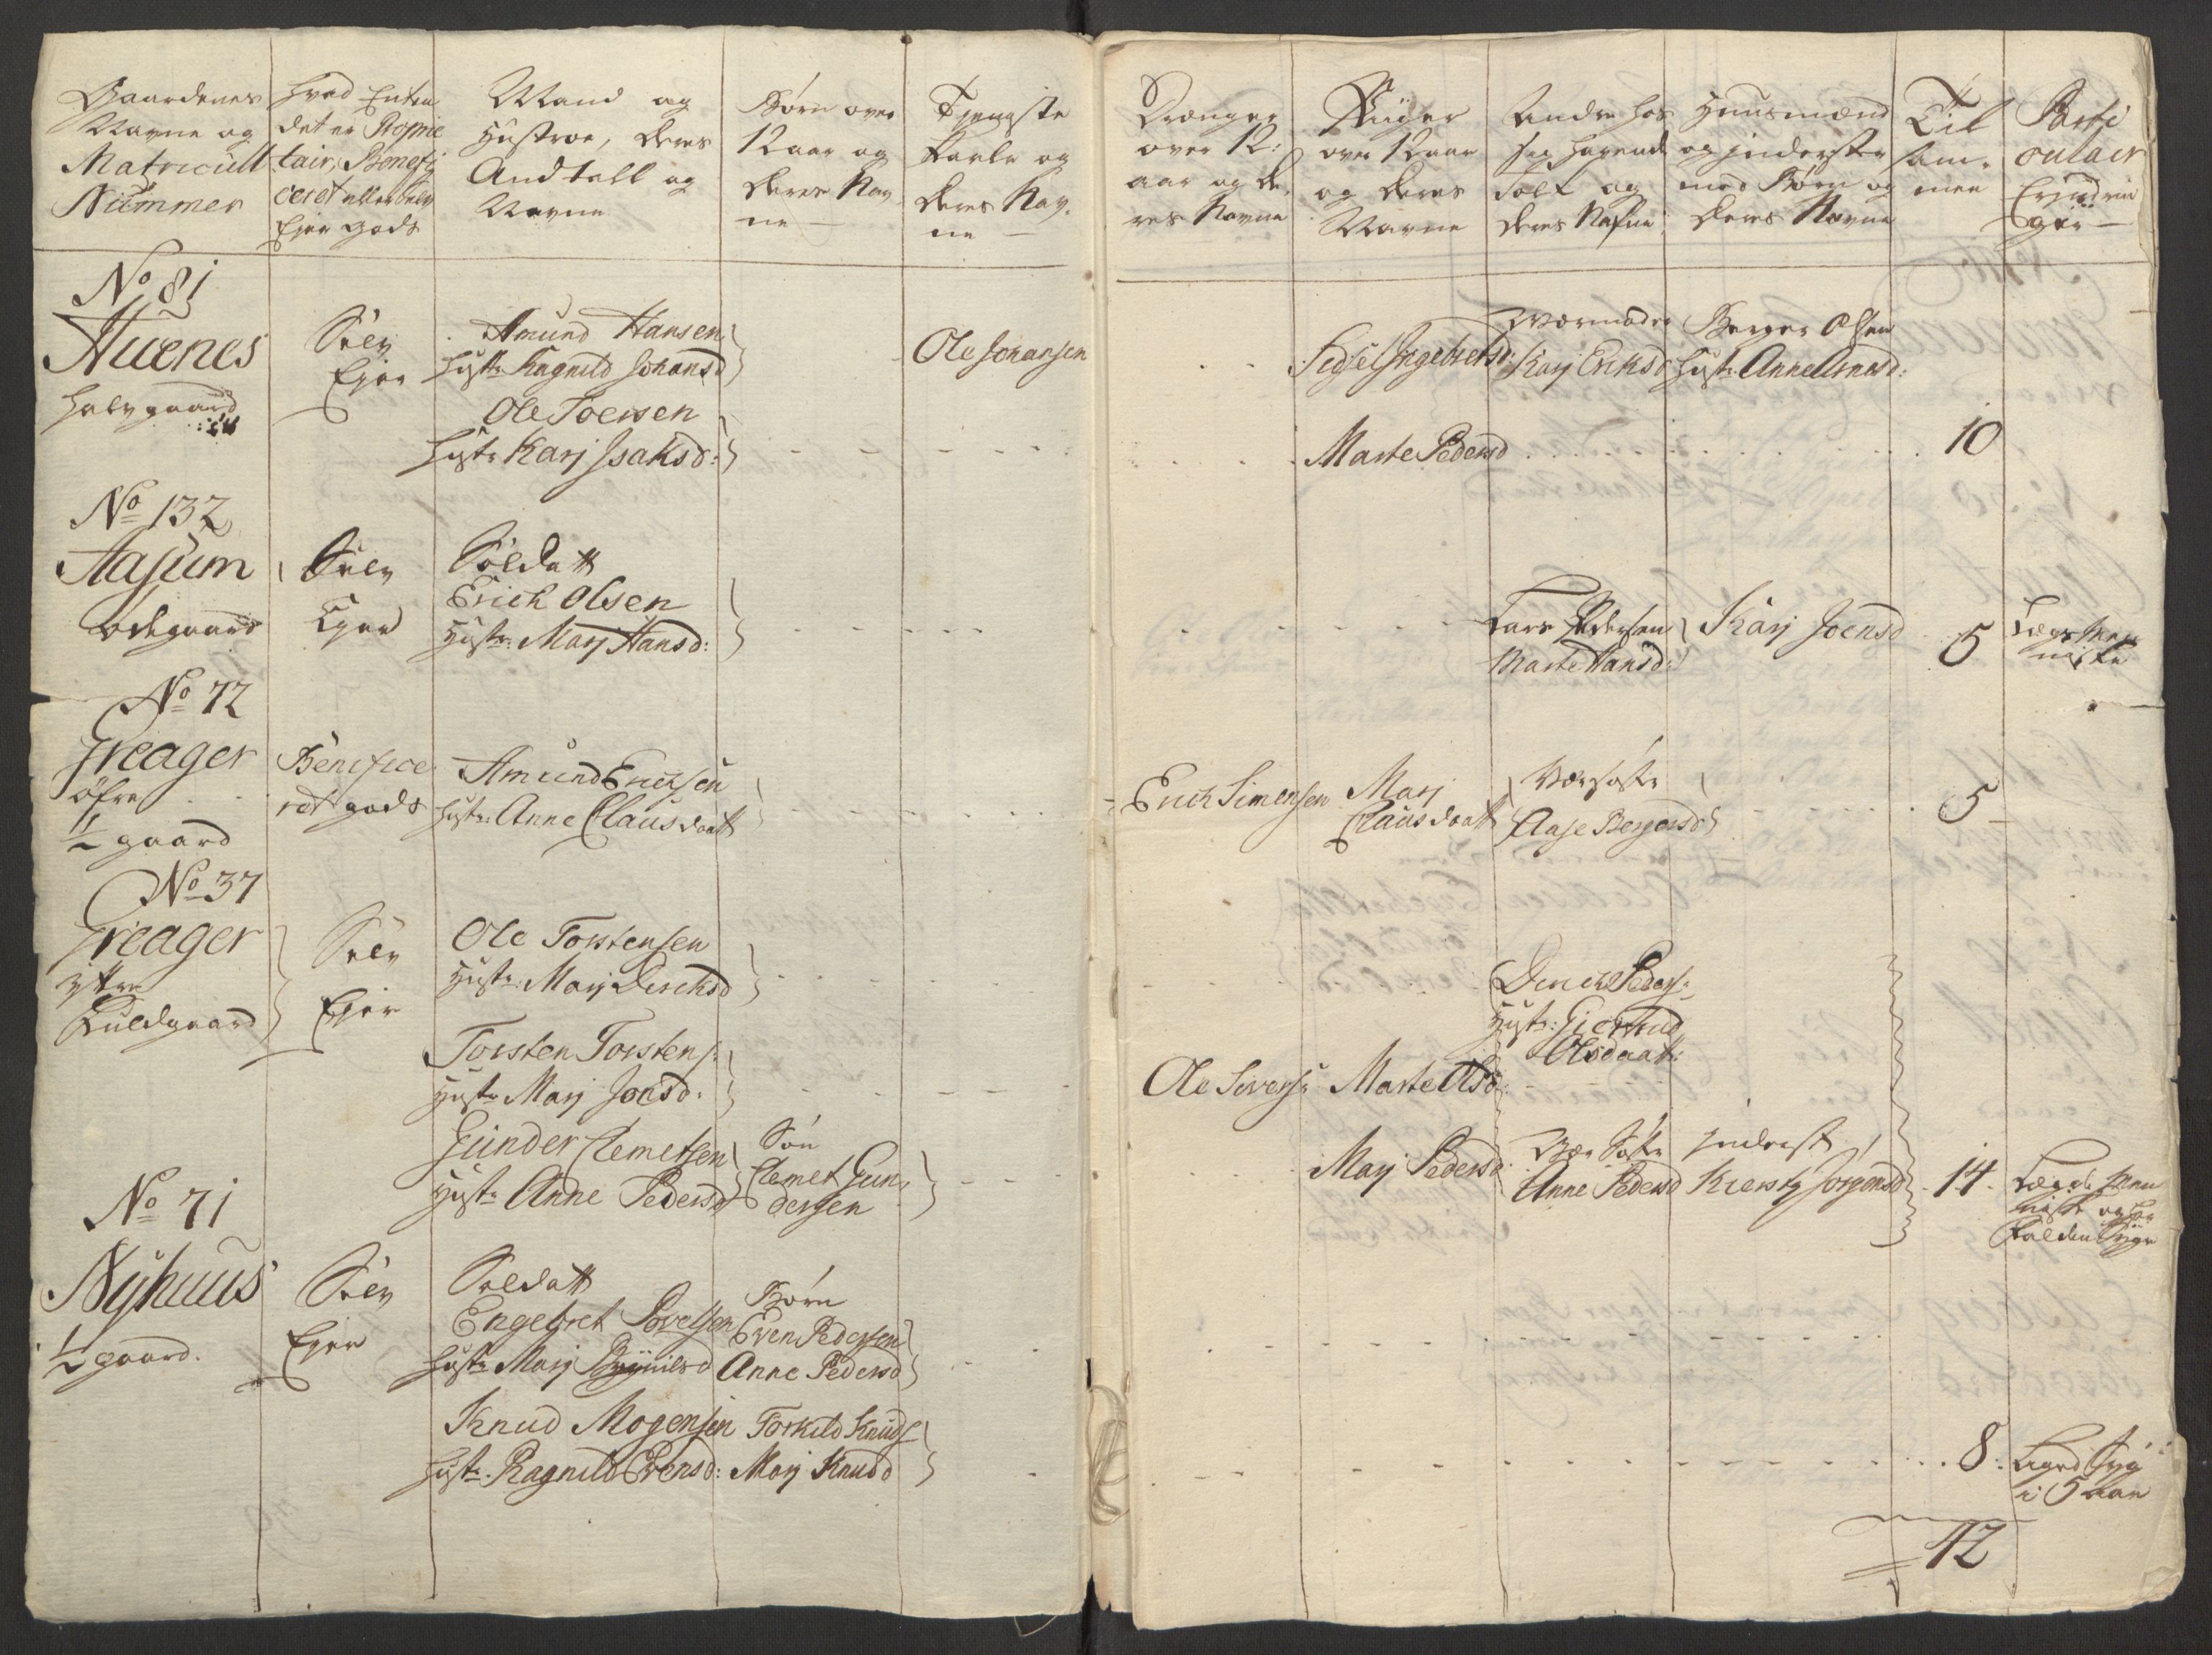 Gaardenes
Navne og
Matricull
Nummer
Hvad Enten
det er Proprie
tair, Benefi
ceret eller Selv
Ejer gods
Mand og
Hustroe, deres
Andtall og
Navne
Børn over
12 aar og
deres Nav
ne
Tjeneste
Karle og
deres Nav
ne
Drenger
over 12
aar og de
res Navne
Piiger
over 12 aar
og deres
Navne
Andre hos
sig havende
Folk og
deres Nafne
Huusmænd
og inderster
med Børn og
deres Navne
Til
sam
men
Parti
culair
Erindrin
ger
No 81
Huenes
halv gaard
Selv
Ejer
Amund Hansen
Hustr Ragnild Johansd
Ole Johansen
Sidsel Ingebretsd:
Værmoder
Karj Eriksd
Berger Olsen
Hustr: Anne Arnesd:
Ole Joensen
Hustr Karj Isaksd:
Marte Pedersd
10
No 132
Aasum
ødegaard
Selv
Ejer
Soldatt
Erich Olsen
Hustr: Marj Hansd:
Lars Pedersen
Marte Hansd:
Karj Joensd
5
Lægs Men
niske
No 72
Greager
öfre
1/2 gaard
Benifice
ret gods
Amund Ericksen
Hustr: Anne Clausdaatt
Erich Simensen
Marj
Clausdaatt
Værsøster
Aase Bergersd
5
No 37
Greager
ytre
Fuldgaard
Selv
Ejer
Ole Torstensen
Hustr: Marj Dircksd
Dirick Peders:
Hustr: Giertrud
Olsdaatt:
Torsten Torstens:
Hustr Marj Joensd:
Ole Sivers:
Marte Olsd:
Gunder Clemetsen
Hustr Anne Pedersd
Søn
Clemet Gun
dersen
Marj Pedersd
Vær Søster
Anne Pedersd
inderst
Kiersty Jörgensd
14
Lægds Men
niske og
falden Syge
No 71
Nyhuus
1/2 gaard.
Selv
Ejer
Soldatt
Engebret Povelsen
Hustr Marj
Børn
Even Pedersen
Anne Pedersd
Knud Mogensen
Hustr. Ragnild Evensd:
Torkild Knuds
Marj Knudsd
8
Syg
i 5 aar
42